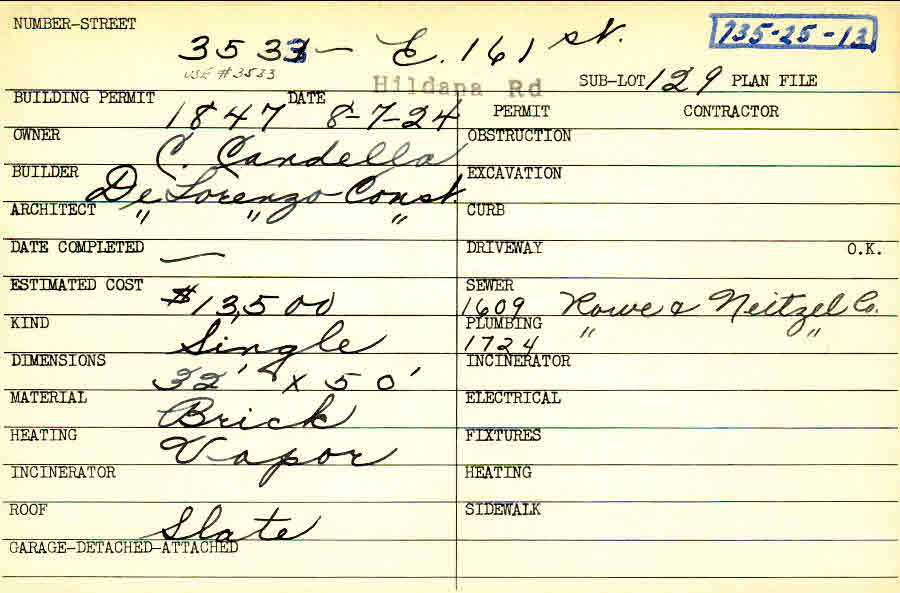 NUMBER-STREET
3533 — E. 161 st.
735-25-13
USE #3533
Hildana Rd
SUB-LOT 129 PLAN FILE
BUILDING PERMIT 1847 DATE 8-7-24
PERMIT CONTRACTOR
OWNER C. Candella
OBSTRUCTION
BUILDER De Lorenzo Const.
EXCAVATION
ARCHITECT " " "
CURB
DATE COMPLETED —
DRIVEWAY O.K.
ESTIMATED COST $13,500
SEWER 1609 Rowe & Neitzel Co.
KIND Single
PLUMBING 1724 " "
DIMENSIONS 32' x 50'
INCINERATOR
MATERIAL Brick
ELECTRICAL
HEATING Vapor
FIXTURES
INCINERATOR
HEATING
ROOF Slate
SIDEWALK
GARAGE-DETACHED-ATTACHED